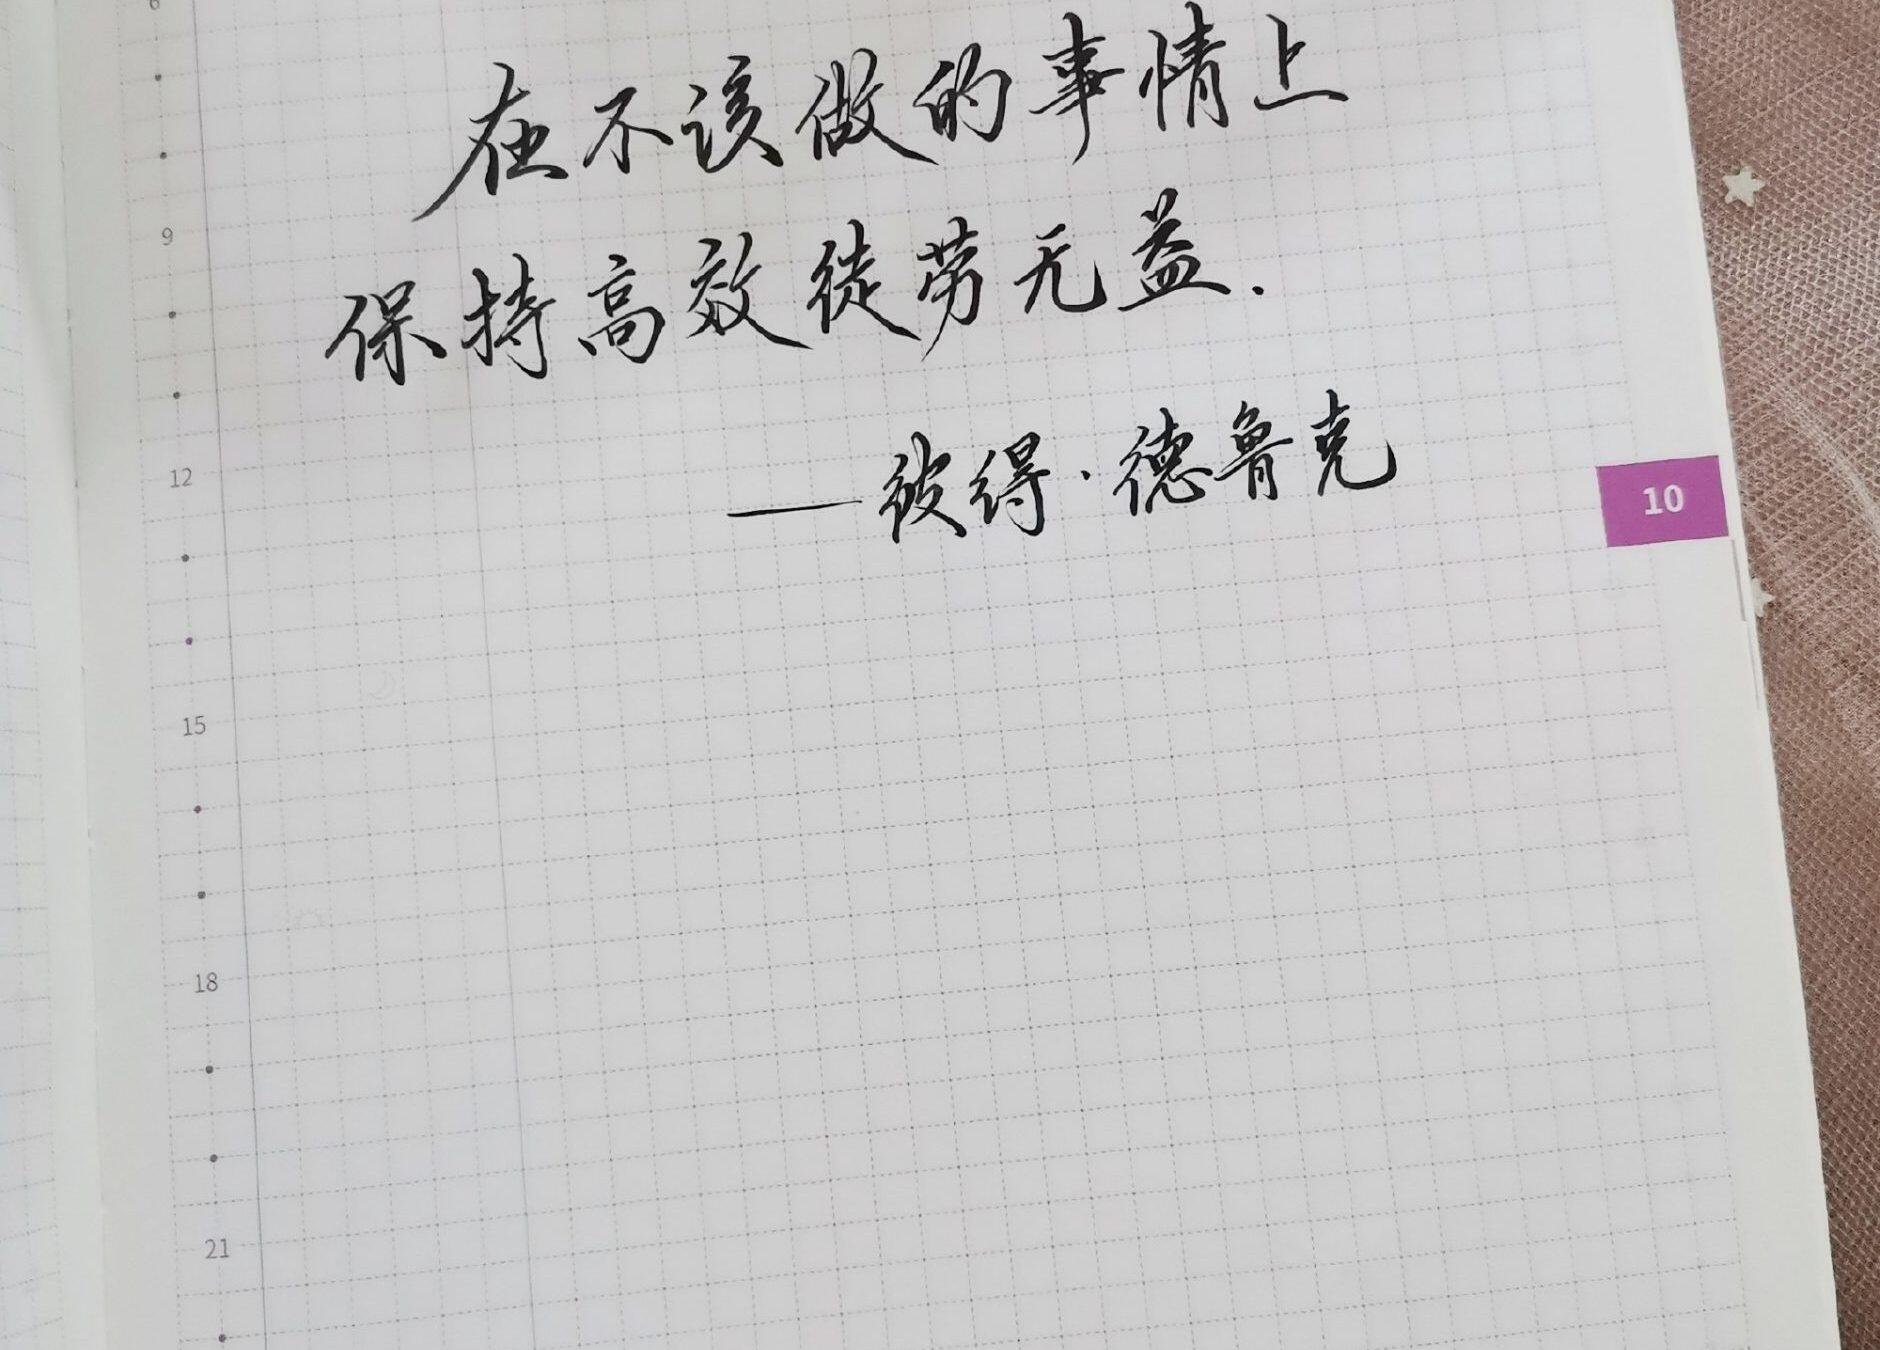 6
在不该做的事情上
9
保持高效徒劳无益.
12
——彼得·德鲁克
10
15
18
21